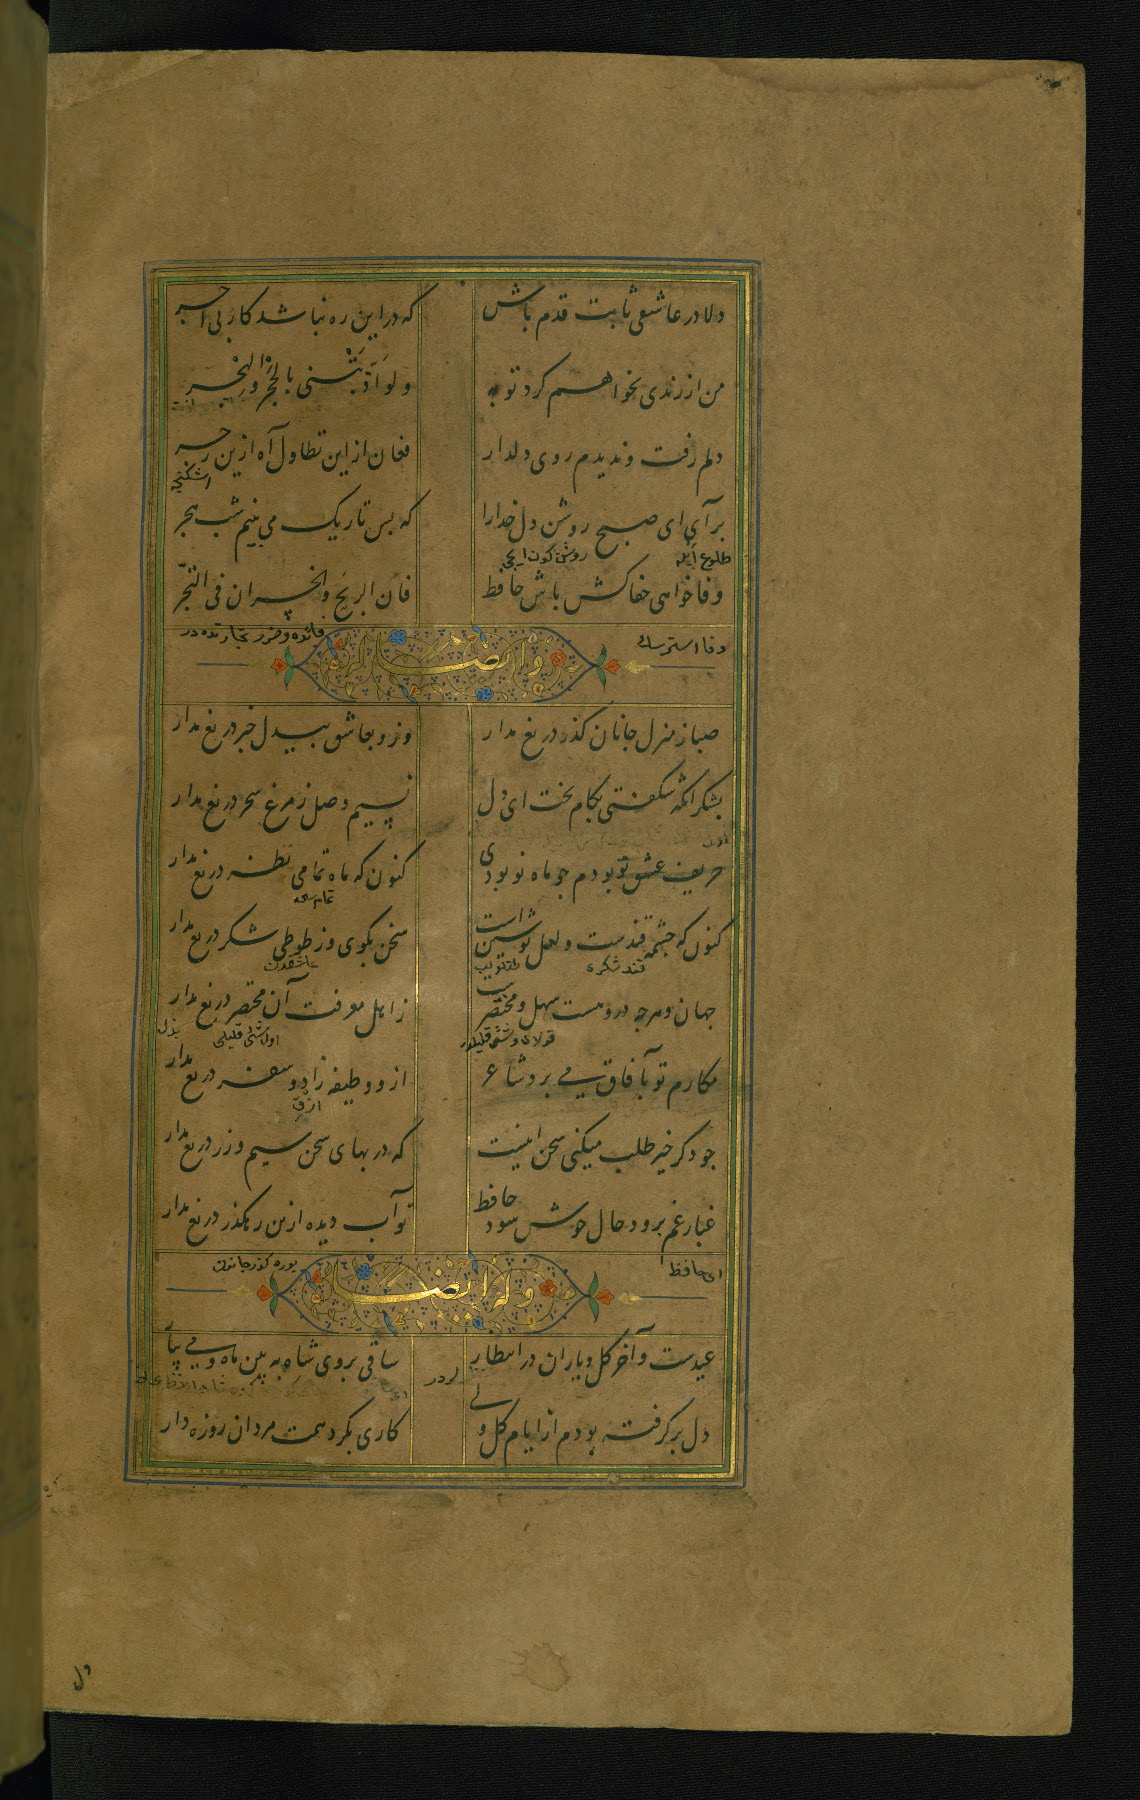 دلا در عاشقی ثابت قدم باش که در این ره نباشد کار بی اجر
من از رندی نخواهم کرد توبه ولو آذیتنی بالحجر والهجر
دلم رفت و ندیدم روی دلدار فغان از این تطاول آه ازین زجر
اشکنجه
برآی ای صبح روشن دل خدارا که بس تاریک می بینم شب هجر
طلوع ایله
وفا خواهی جفاکش باش حافظ فان الربح والخسران فی التجر
وفا استرسك فائده و ضرر تجارتده در
وله ایضا
صبا ز منزل جانان گذر دریغ مدار وزو بعاشق بیدل خبر دریغ مدار
بشکر آنکه شکفتی بکام بخت ای گل نسیم وصل ز مرغ سحر دریغ مدار
حریف عشق تو بودم جو ماه نو بودی کنون که ماه تمامی نظر دریغ مدار
کنون که چشمه قندست و لعل نوشین است سخن بگوی و ز طوطی شکر دریغ مدار
جهان و هرجه دروهست سهل و مختصرست ز اهل معرفت آن مختصر دریغ مدار
بذل
مکارم تو بآفاق می برد شاعر ازو وظیفه زاد و سفر دریغ مدار
جو ذکر خیر طلب میکنی سخن اینست که در بهای سخن سیم و زر دریغ مدار
غبار غم برود حال خوش شود حافظ تو آب دیده ازین رهگذر دریغ مدار
ای حافظ
وله ایضا
عیدست و آخر گل و یاران در انتظار ساقی بروی شاه به بین ماه و می بیار
دل برگرفته بودم از ایام گل ولی کاری بکرد همت مردان روزه دار